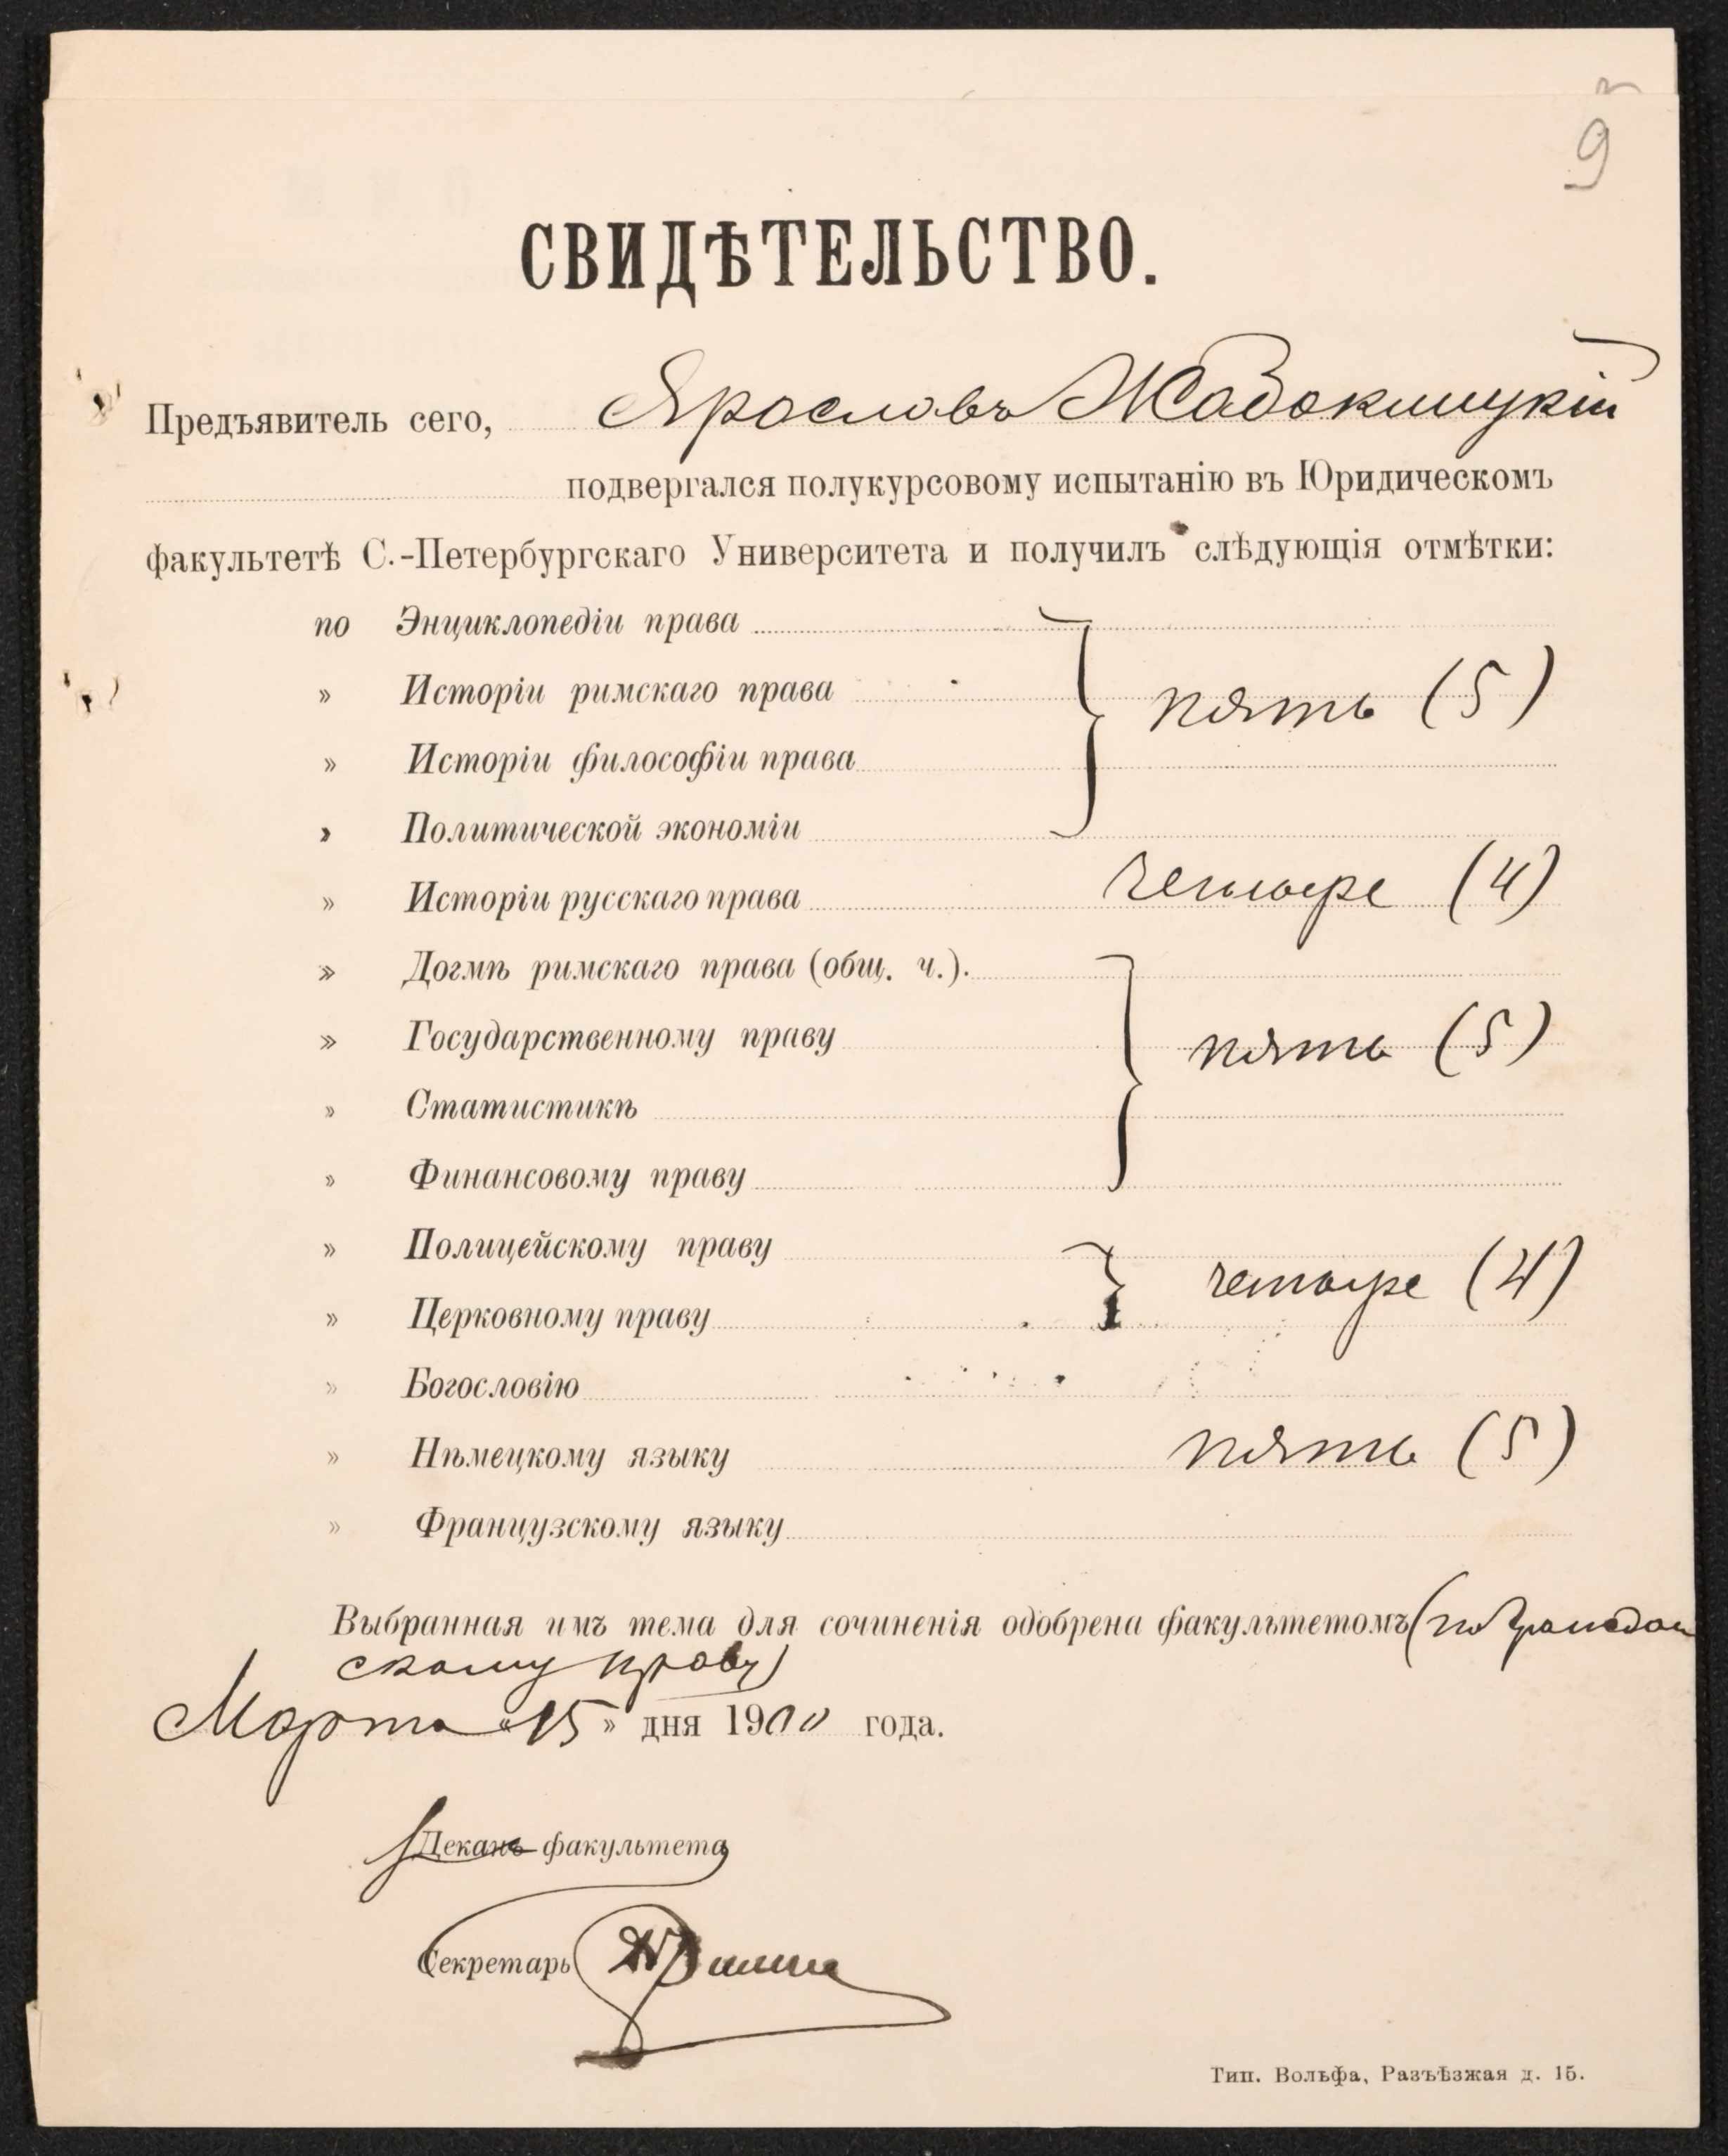 9
СВИДѢТЕЛЬСТВО.
Предъявитель сего, Ярославъ
подвергался полукурсовому испытанію въ Юридическомъ
факультетѣ С.-Петербургскаго Университета и получилъ слѣдующія отмѣтки:
по Энциклопедіи права
» Исторіи римскаго права пять (5)
» Исторіи философіи права
» Политической экономіи
» Исторіи русскаго права четыре (4)
» Догмѣ римскаго права (общ. ч.).
» Государственному праву пять (5)
» Статистикѣ
» Финансовому праву
» Полицейскому праву четыре (4)
» Церковному праву
» Богословію
» Нѣмецкому языку пять (5)
» Французскому языку
Выбранная имъ тема для сочиненія одобрена факультетомъ (по граждан
скому праву)
Марта «15» дня 1900 года.
Деканъ факультета
Секретарь
Тип. Вольфа, Разъѣзжая д. 15.